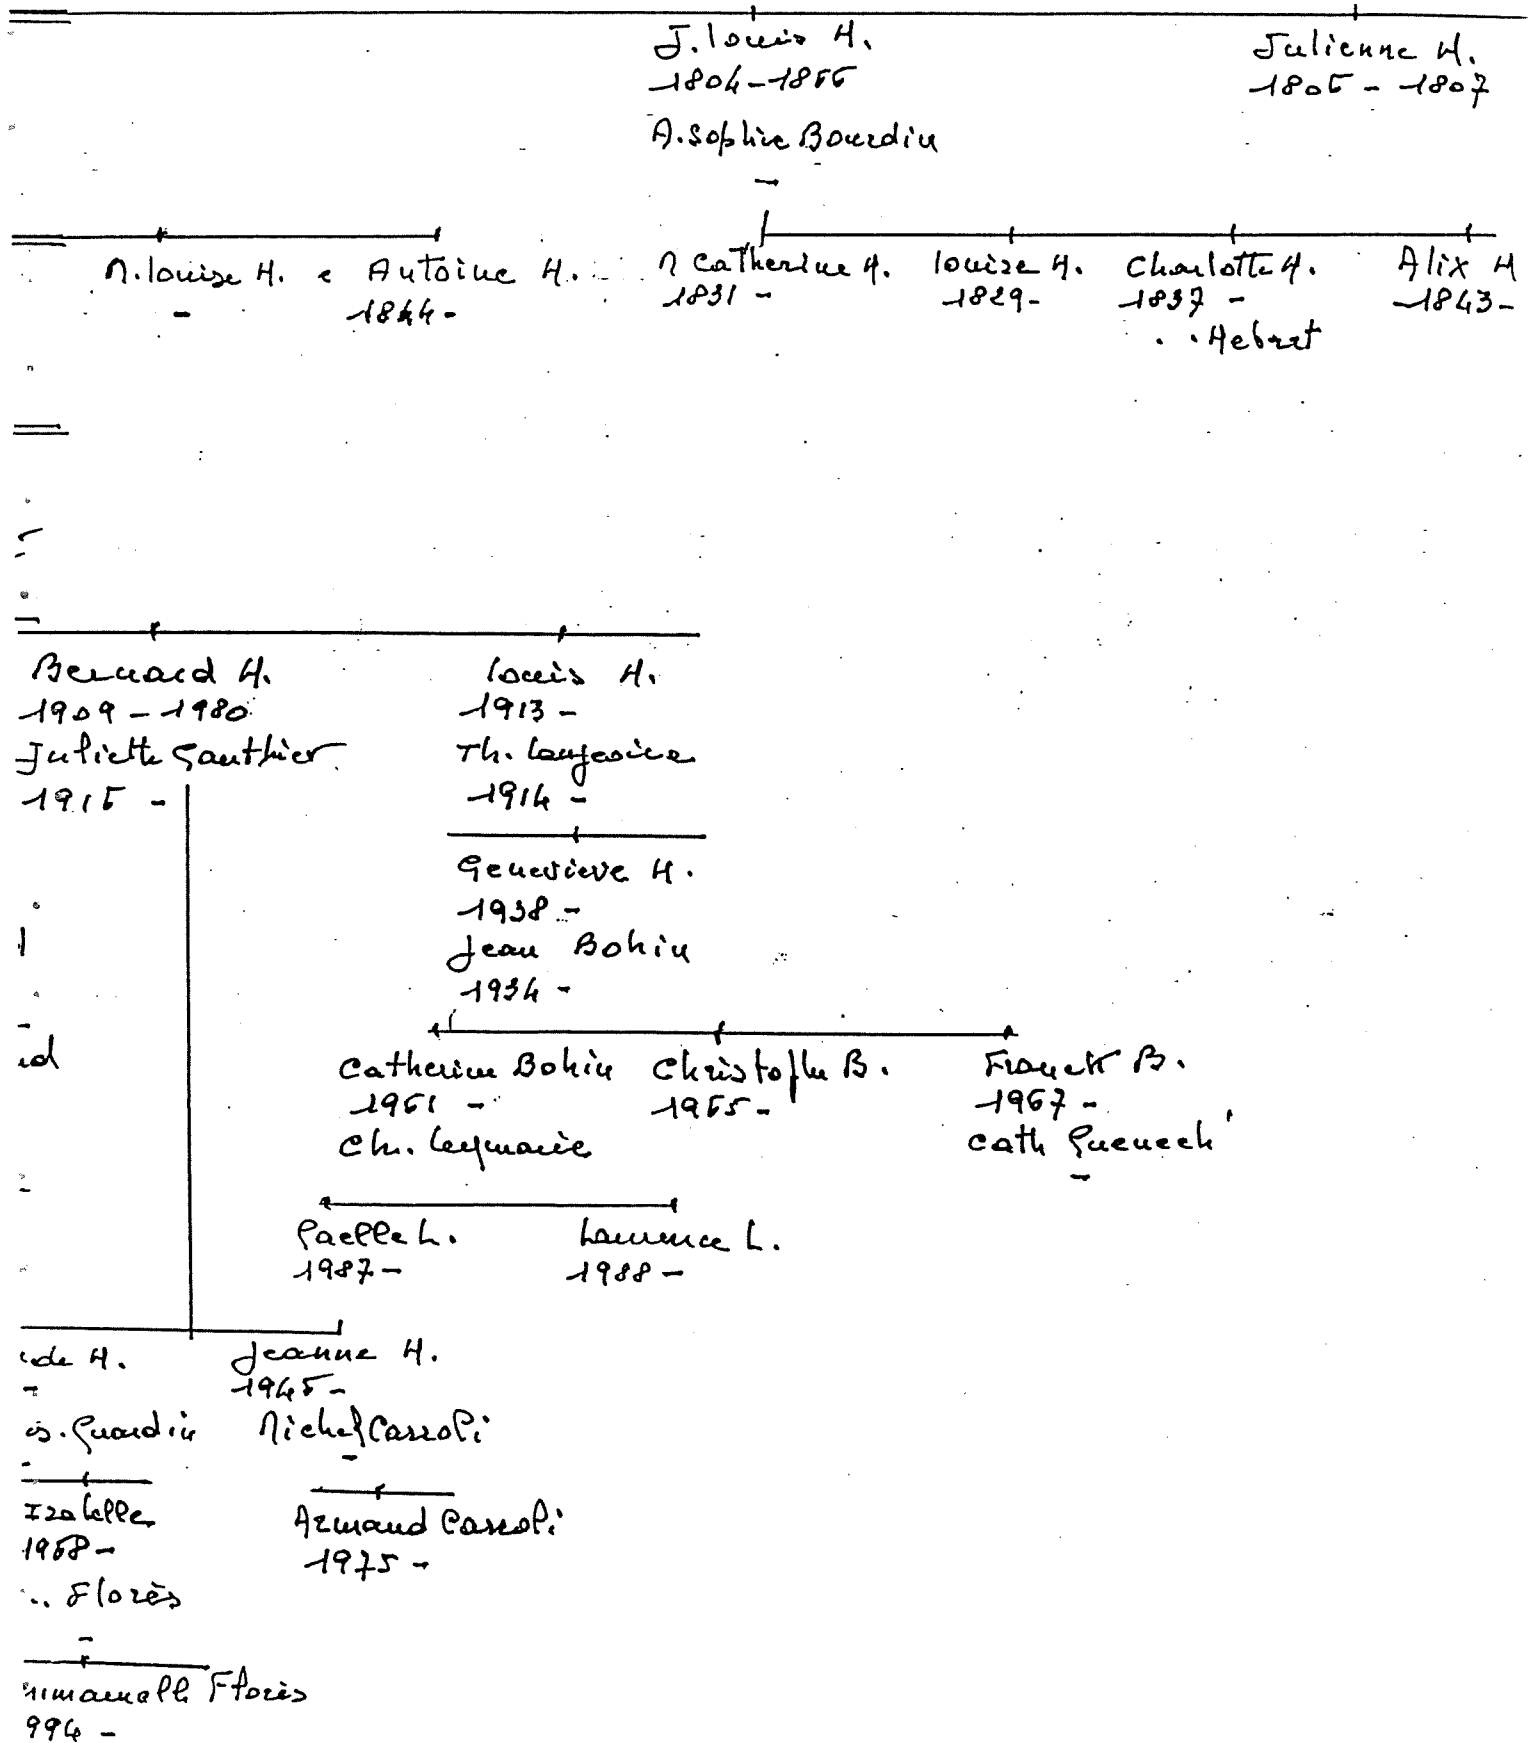 J. Louis H.
1804 - 1866
A. Sophie Bourdin
Julienne H.
1806 - 1807
M. Louise H.
-
Antoine H.
1844 -
M Catherine H.
1831 -
Louise H.
1829 -
Charlotte H.
1837 -
. . Hebret
Alix H
1843 -
Bernard H.
1909 - 1980
Juliette Gauthier
1915 -
Louis H.
1913 -
Th.
1914 -
Geneviève H.
1938 -
Jean Bohin
1934 -
id
Catherine Bohin
1961 -
Ch. Leymarie
Christophe B.
1965 -
Franck B.
1967 -
Cath Guenech'
-
Gaelle L.
1987 -
Laurence L.
1988 -
de H.
-
s. Guardin
-
Jeanne H.
1945 -
Michel Cassoli
-
Isabelle
1968 -
.. Florès
-
Armand Cassoli
1975 -
mmanuelle Florès
994 -